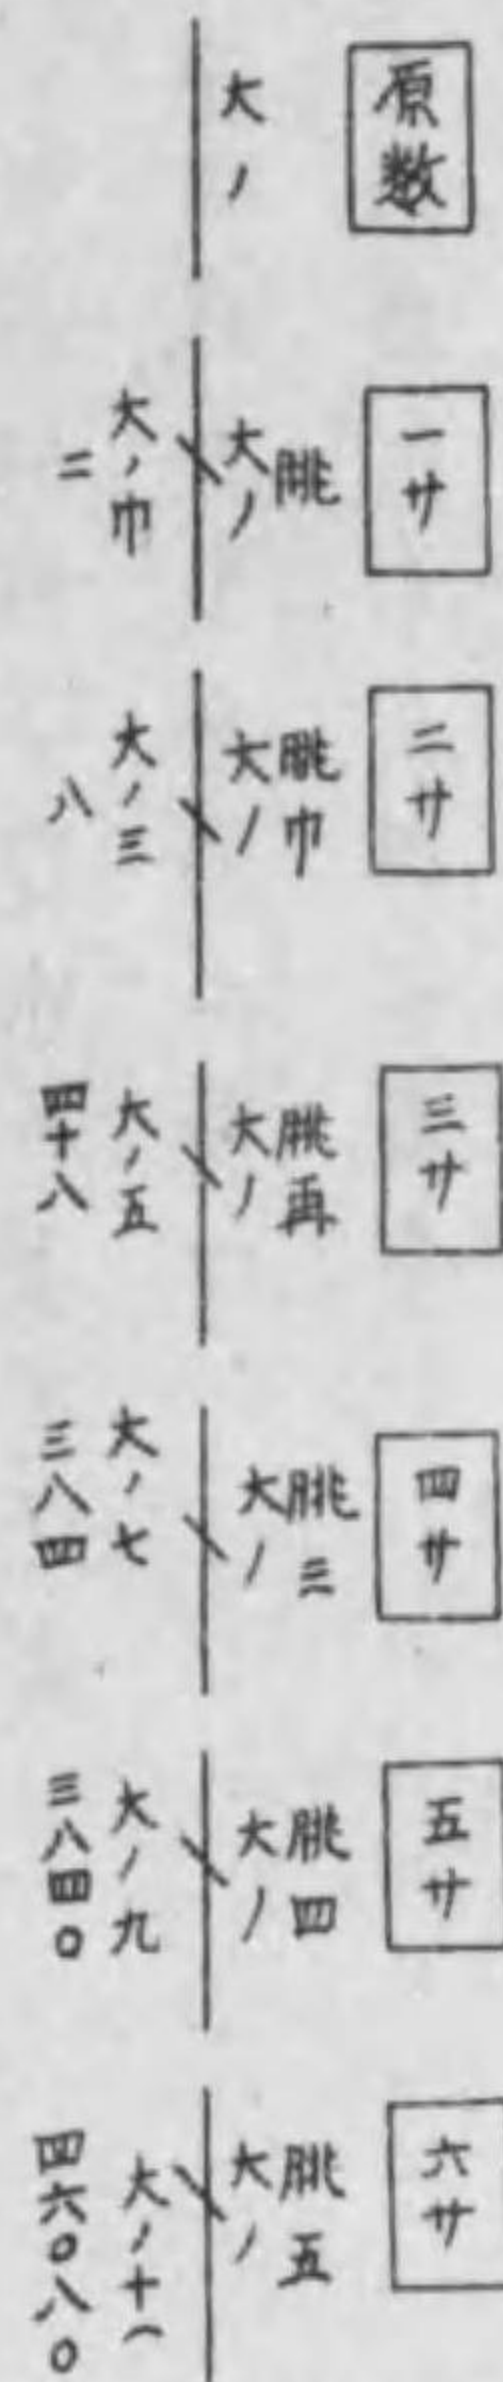 原数
大ノ
一サ
朓
大ノ
大ノ巾
二
二サ
朓巾
大ノ
大ノ三
八
三サ
朓再
大ノ
大ノ五
四十八
四サ
朓三
大ノ
大ノ七
三八四
五サ
朓四
大ノ
大ノ九
三八四〇
六サ
朓五
大ノ
大ノ十一
四六〇八〇